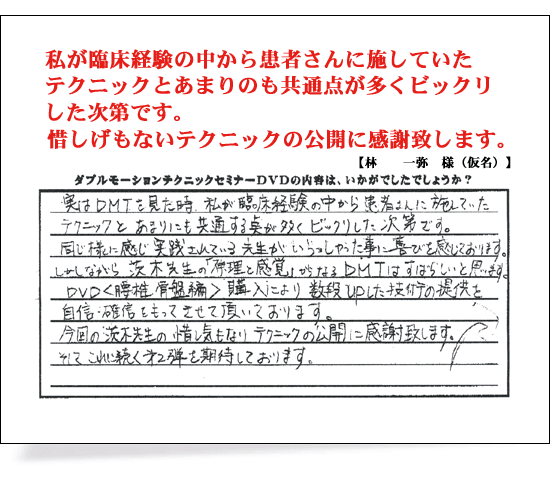 私が臨床経験の中から患者さんに施していた
テクニックとあまりのも共通点が多くビックリ
した次第です。
惜しげもないテクニックの公開に感謝致します。
【林　　一弥　様（仮名）】
ダブルモーションテクニックセミナーDVDの内容は、いかがでしたでしょうか？
実はDMTを見た時、私が臨床経験の中から患者さんに施していた
テクニックとあまりにも共通する点が多くビックリした次第です。
同じ様に感じ実践されている先生がいらっしゃった事に喜びを感じております。
しかしながら茨木先生の「原理と感覚」からなるDMTはすばらしいと思います。
DVD<腰椎骨盤編>購入により数段UPした技術の提供を
自信・確信をもってさせて頂いております。
今回の茨木先生の惜し気もなりテクニックの公開に感謝致します。
そしてこれに続く第2弾を期待しております。